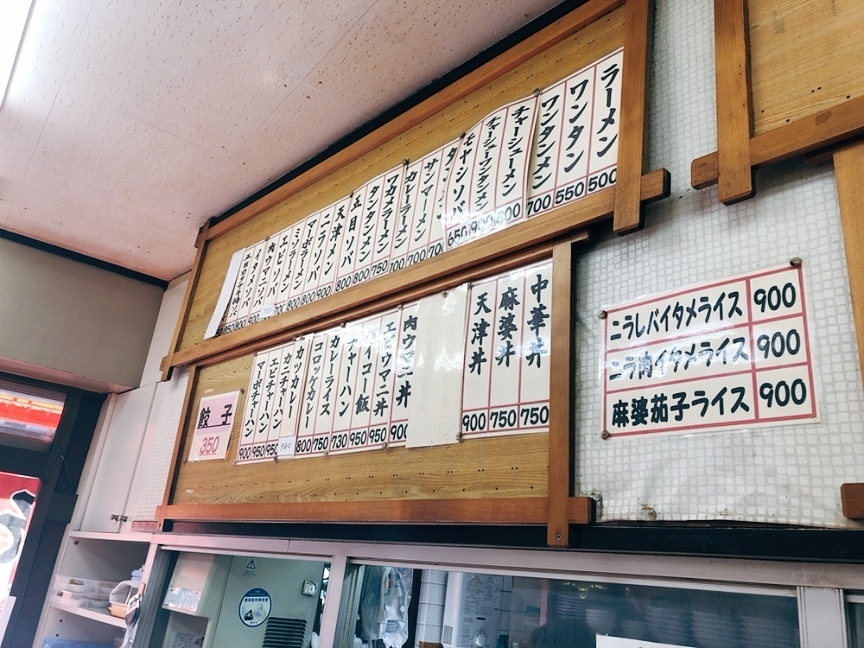 ラーメン 500
ワンタン 550
ワンタンメン 700
チャーシューメン 800
チャーシューワンタンメン 900
モヤシソバ 650
タ
サンマーメン 700
カレーラーメン 700
ワカメラーメン 700
タンタンメン 750
五目ソバ 800
天津メン 800
ニラソバ
マーボラーメン
ミソラーメン
エビソバ
肉ウマニソバ
中華丼 750
麻婆丼 750
天津丼 900
肉ウマニ丼 900
エビウマニ丼 950
950
チャーハン
カレーライス 730
コロッケカレー 750
カツカレー 800
カニチャーハン
エビチャーハン 950
マーボチャーハン 900
餃子
350
ニラレバイタメライス 900
ニラ肉イタメライス 900
麻婆茄子ライス 900